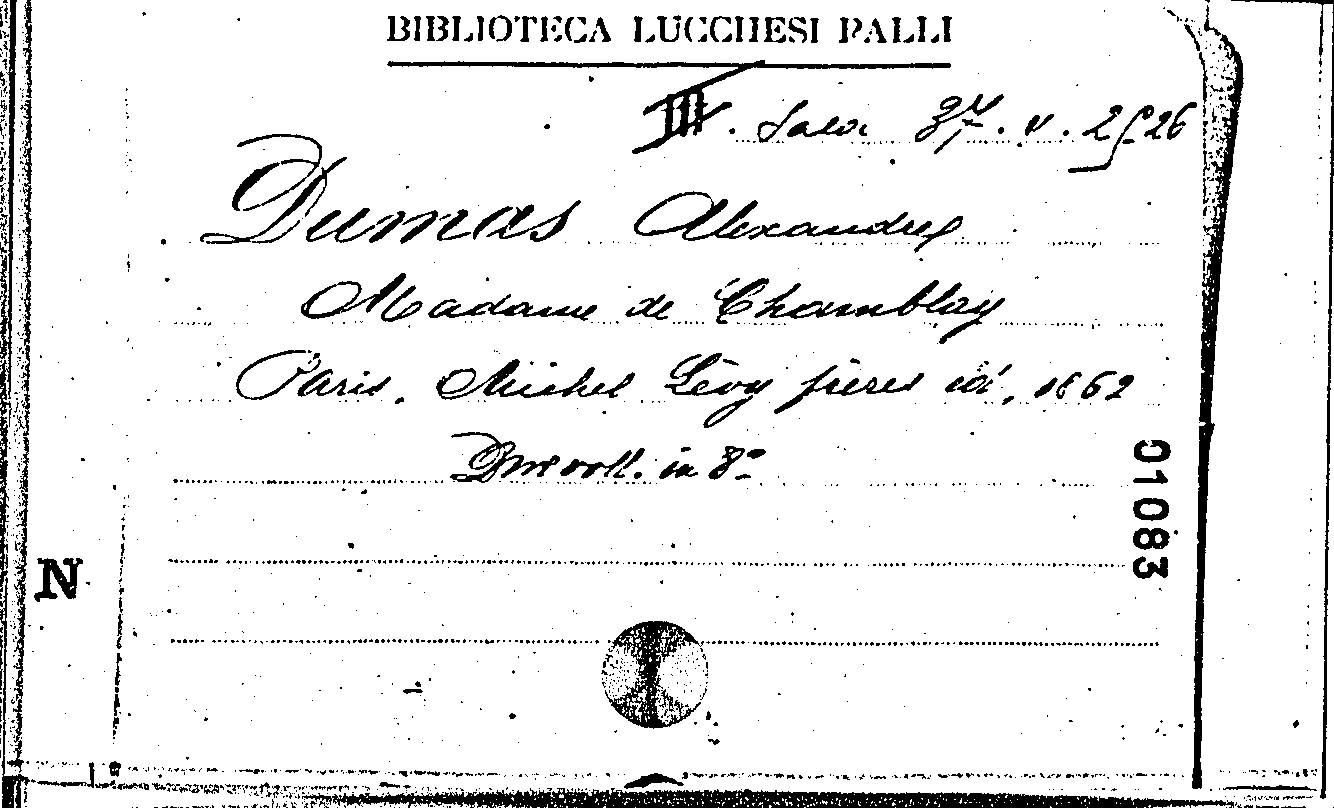 BIBLIOTECA LUCCHESI PALLI
III. Sala
Dumas Alexandre
Madame de Chamblay
Paris, Michel Lévy frères éd., 1862
Due voll. in 8º
01083
N